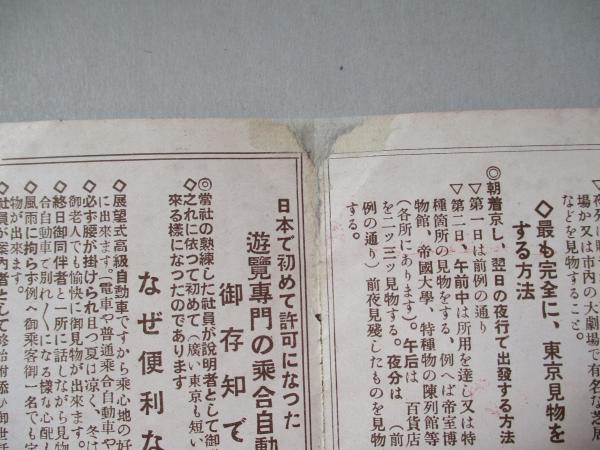 場か又は市内の大劇場で有名な芝居
などを見物すること。
◇最も完全に、東京見物を
する方法
◎朝着京し、翌日の夜行て出發する方法
▽第一日は前例の通り
▽第二日、午前中は所用を達し又は特
種箇所の見物をする、例へば帝室博
物館、帝國大學、特種物の陳列館等
(各所にあります)。午后は 百貨店
を二ッ三ッ見物する。夜分は (前
例の通り) 前夜見殘したものを見物
する。
日本で初めて許可になった
遊覽專門の乘合自動
御存知で
◎當社の熟練した社員が説明者として御
◇之れに依つて初めて(廣い東京も短い
來る樣になつたのであります
なぜ便利な
◇展望式高級自動車ですから乘心地の好
に出來ます。(電車や普通乘合自動車や
◇必ず腰が掛けられ且つ夏は凉く、冬は
御老人でも愉快に御見物が出來ます。
◇終日御同伴者と一所に話しながら見物
合自動車で別れ〱になる樣な心配し
◇風雨に拘らず例へ御乘客御一名でも定
物が出來ます。
◇社員が案内者として終始附添ひ御世話